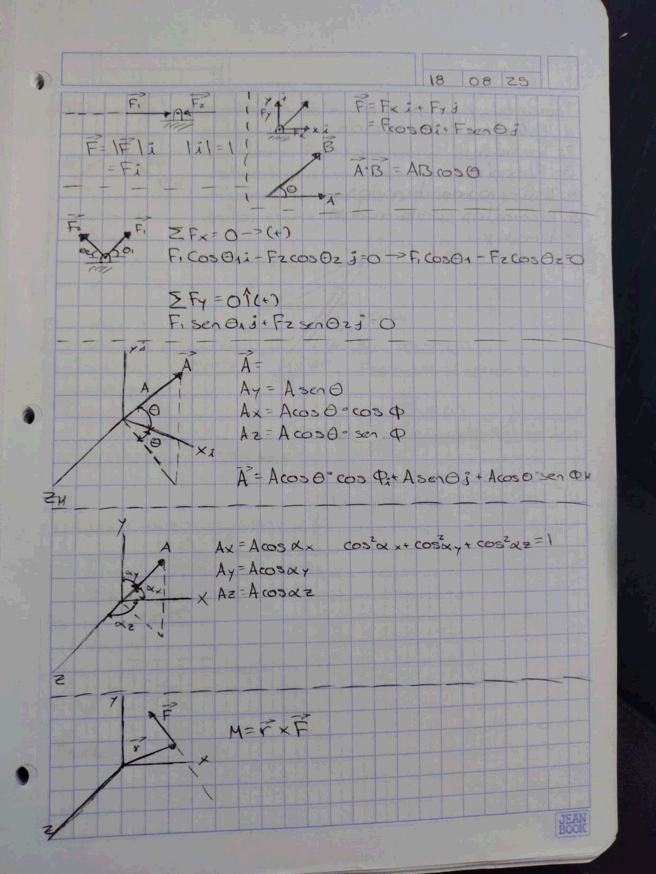 18 08 25
F₁ F₂
F⃗ = |F⃗| i |i| = 1
= Fi
y j
Fy
x i
F⃗ = Fx i + Fy j
= Fcosθi + Fsenθj
B⃗
θ
A⃗
A⃗·B⃗ = ABcosθ
F₂ F₁
θ₂ θ₁
ΣFx = 0 → (+)
F₁ cosθ₁i - F₂cosθ₂ j = 0 → F₁cosθ₁ - F₂cosθ₂ = 0
ΣFy = 0 ↑(+)
F₁ senθ₁j + F₂ senθ₂j = 0
y j
A⃗
A
θ
θ
x i
z k
A⃗ =
Ay = A senθ
Ax = Acosθ·cos ϕ
Az = Acosθ·sen ϕ
A⃗ = Acosθ·cos ϕi + Asenθj + Acosθ·sen ϕk
y
A
αy
αx
αz
x
z
Ax = Acos αx cos²αx + cos²αy + cos²αz = 1
Ay = Acosαy
Az = Acosαz
y
F⃗
r⃗
x
z
M = r⃗ x F⃗
JEAN
BOOK